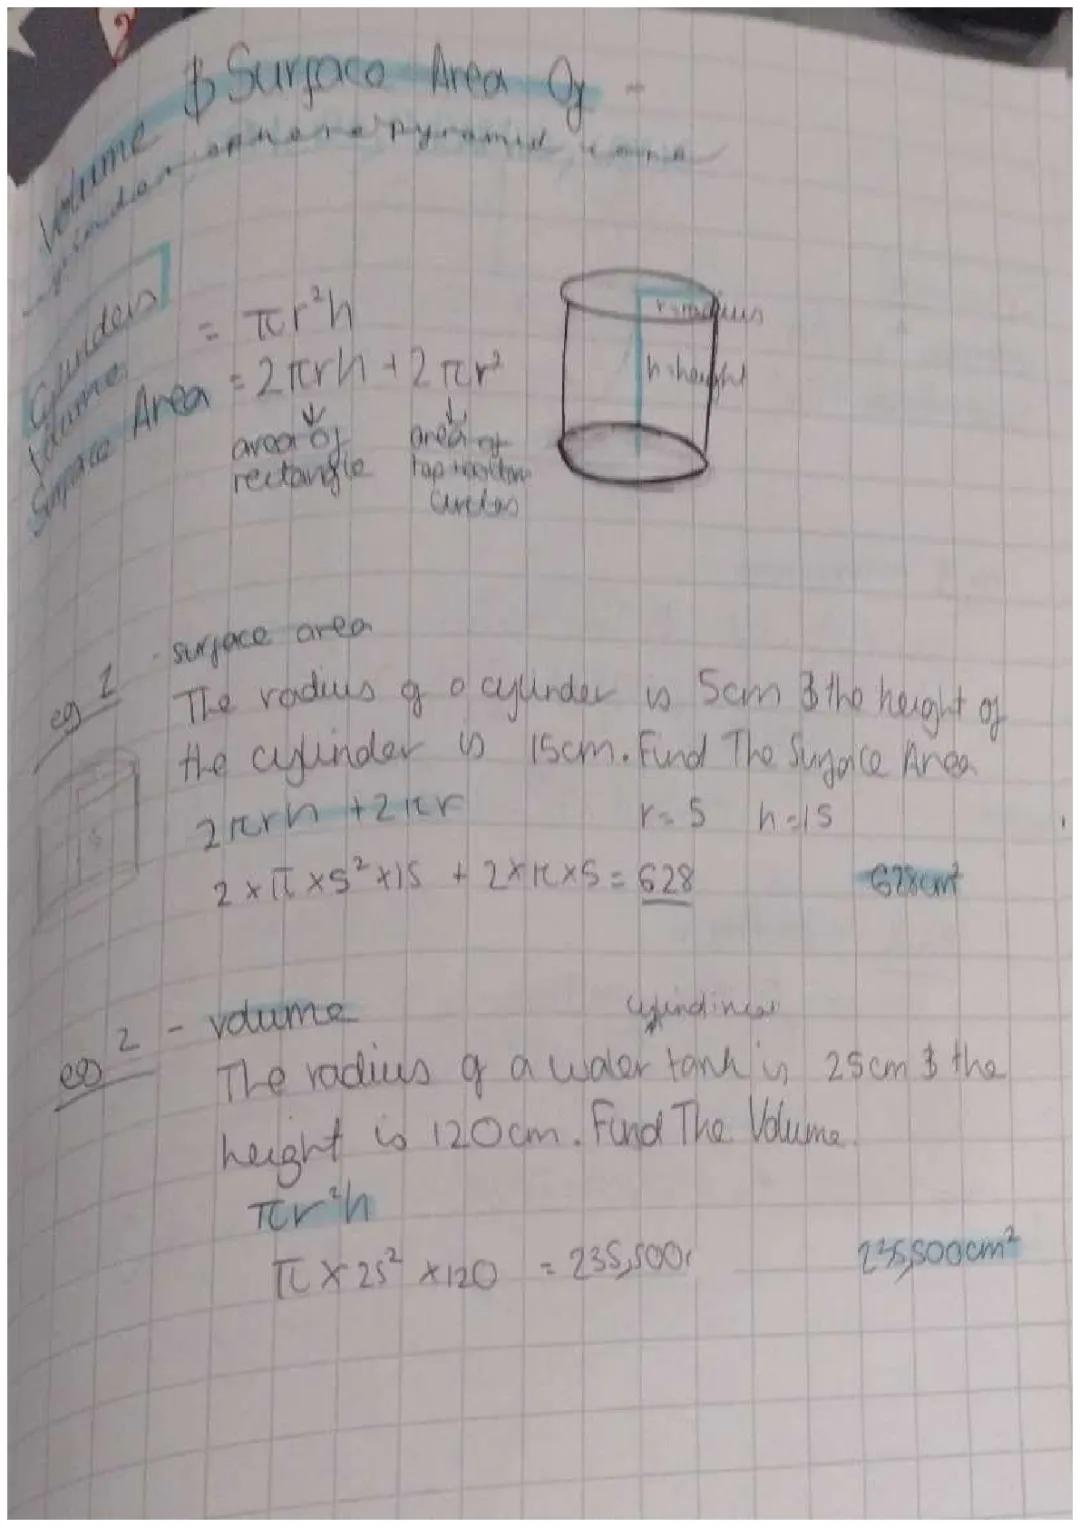 Volume & Surface Area Of -
cylinder sphere pyramid cone
Cylinders
Volume = πr²h
Surface Area = 2πrh + 2πr²
↓ ↓
area of rectangle
area of top + bottom circles
r=radius
h=height
eg 1 - surface area
The radius of a cylinder is 5cm & the height of
the cylinder is 15cm. Find The Surface Area
2πrh + 2πr r=5 h=15
2 × π × 5² × 15 + 2 × π × 5 = 628 628cm²
15
eg 2 - volume
cylindincar
The radius of a water tank is 25cm & the
height is 120cm. Find The Volume.
πr²h
π × 25² × 120 = 235,500 235,500cm²